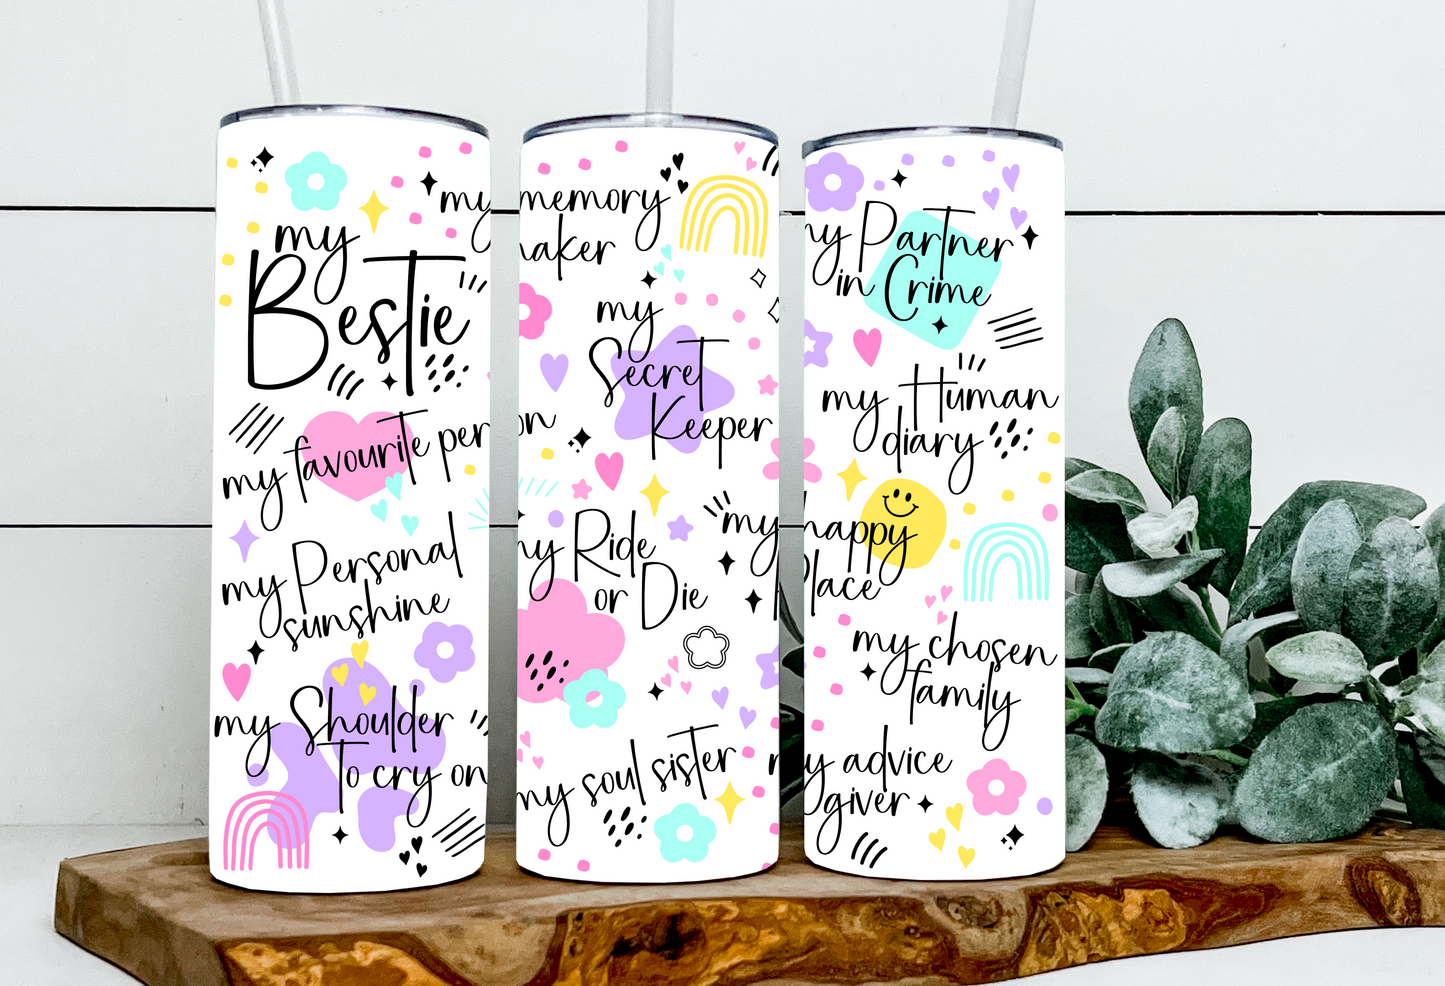 my
Bestie
my favourite per
my Personal
sunshine
my Shoulder
To cry on
my
memory
aker
my
Secret
Keeper
on
my Ride
or Die
my
my soul sister
my Partner
in Crime
my Human
diary
happy
Place
my chosen
family
my advice
giver